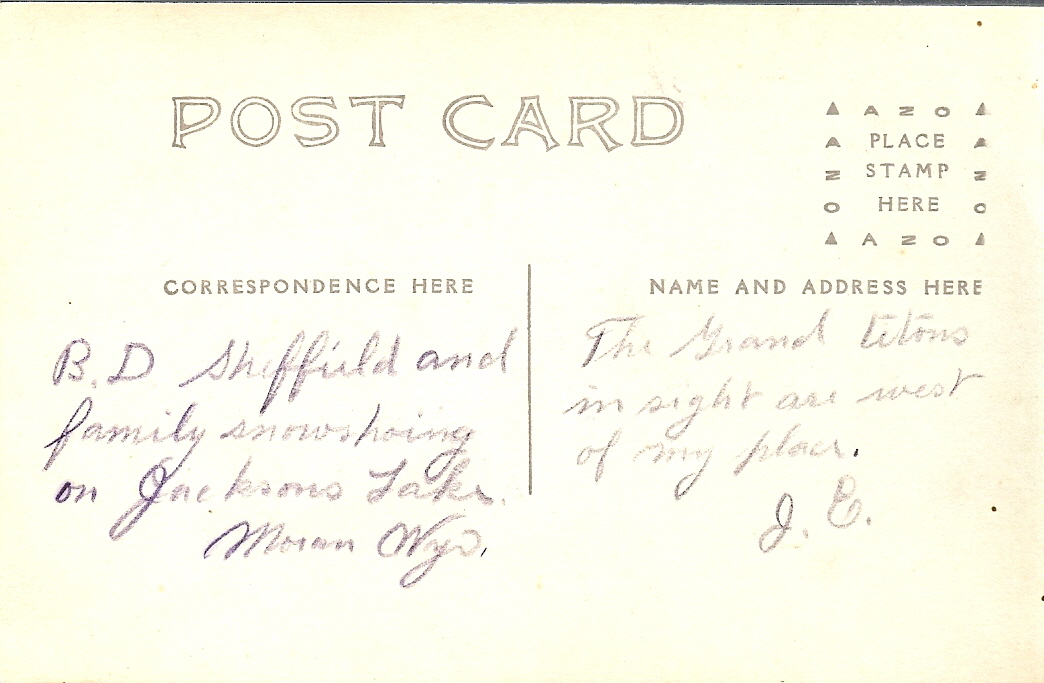 POST CARD
▲ A Z O ▲
A PLACE A
Z STAMP Z
O HERE O
▲ A Z O ▲
CORRESPONDENCE HERE
B. D Sheffield and
family snowshoing
on Jacksons Lake.
Moran Wyo.
NAME AND ADDRESS HERE
The Grand tetons
in sight are west
of my place.
J. E.